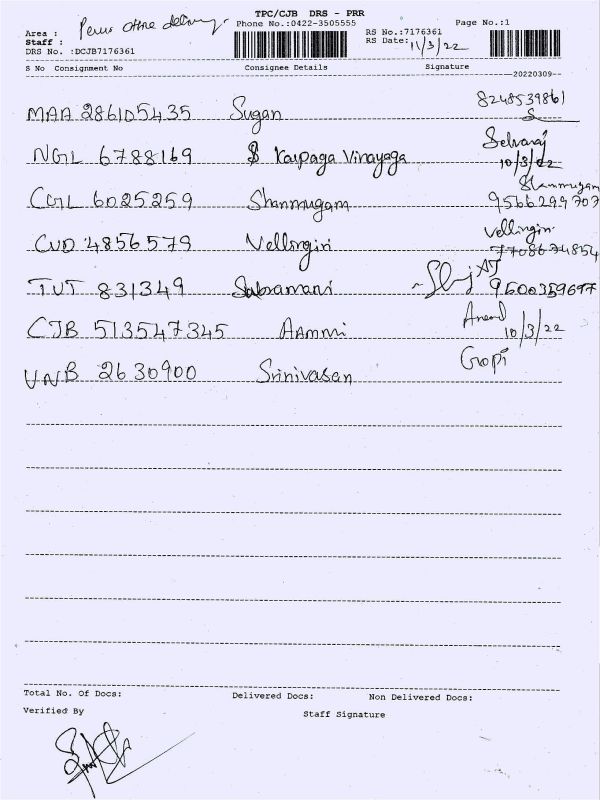 TPC/CJB DRS - PRR
Phone No.:0422-3505555
Page No.:1
Area :
Staff :
DRS No. :DCJB7176361
RS No.:7176361
RS Date: 11/3/22
S No Consignment No Consignee Details Signature
20220309
MAA 286105435 Sugan 8248539861
NGL 6788169 Karpaga Vinayaga Selvaraj 10/3/22
CGL 6025259 Shanmugam Shanmugam 9566299707
CVD 4856579 Vellingiri Vellingiri 7708674854
TUT 831349 Subramani 9600359677
CJB 513547345 AAmmi Anand 10/3/22
VNB 2630900 Srinivasan Gopi
Total No. Of Docs: Delivered Docs: Non Delivered Docs:
Verified By
Staff Signature